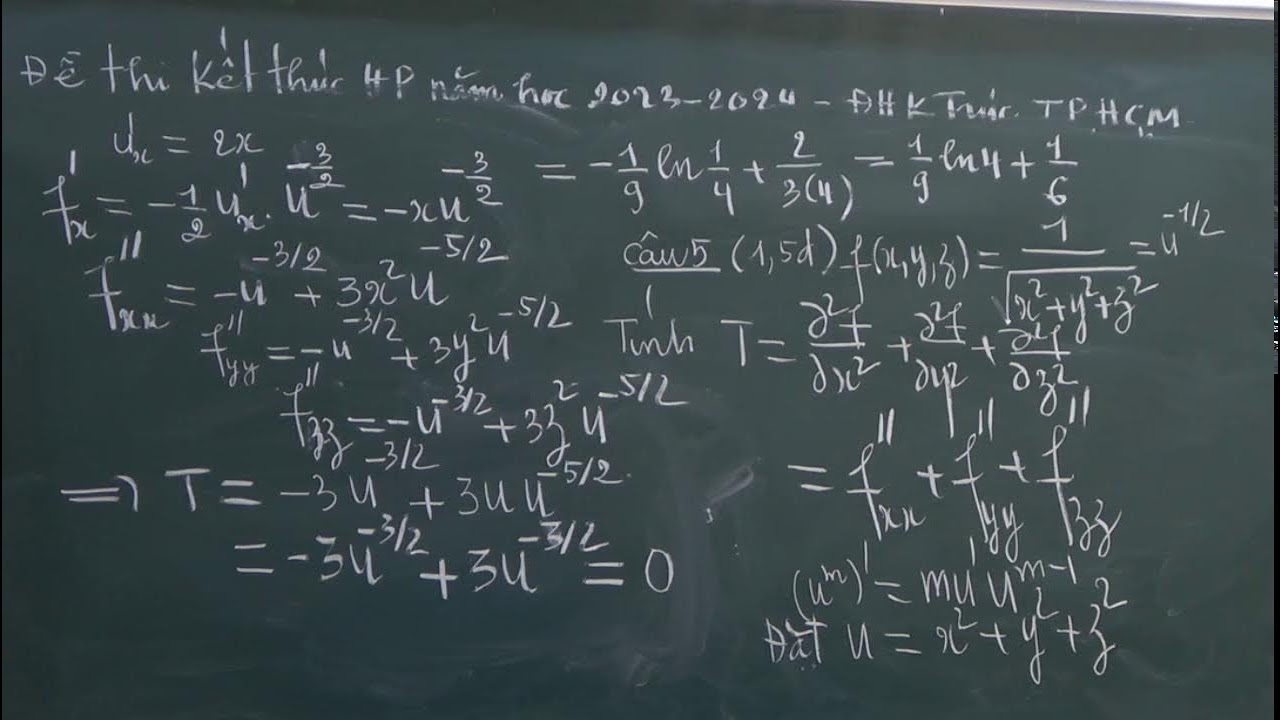 Đề thi kết thúc HP năm học 2023-2024 - ĐHKTrúc TPHCM
u'x = 2x
f'x = -1/2 u'x . u^(-3/2) = -xu^(-3/2)
f''xx = -u^(-3/2) + 3x²u^(-5/2)
f''yy = -u^(-3/2) + 3y²u^(-5/2)
f''zz = -u^(-3/2) + 3z²u^(-5/2)
=> T = -3u^(-3/2) + 3uu^(-5/2)
= -3u^(-3/2) + 3u^(-3/2) = 0
= -1/9 ln 1/4 + 2/3(4) = 1/9 ln4 + 1/6
Câu 5 (1,5đ) f(x,y,z) = 1/√(x²+y²+z²) = u^(-1/2)
Tính T = ∂²f/∂x² + ∂²f/∂y² + ∂²f/∂z²
= f''xx + f''yy + f''zz
(u^m)' = mu'u^(m-1)
Đặt u = x² + y² + z²